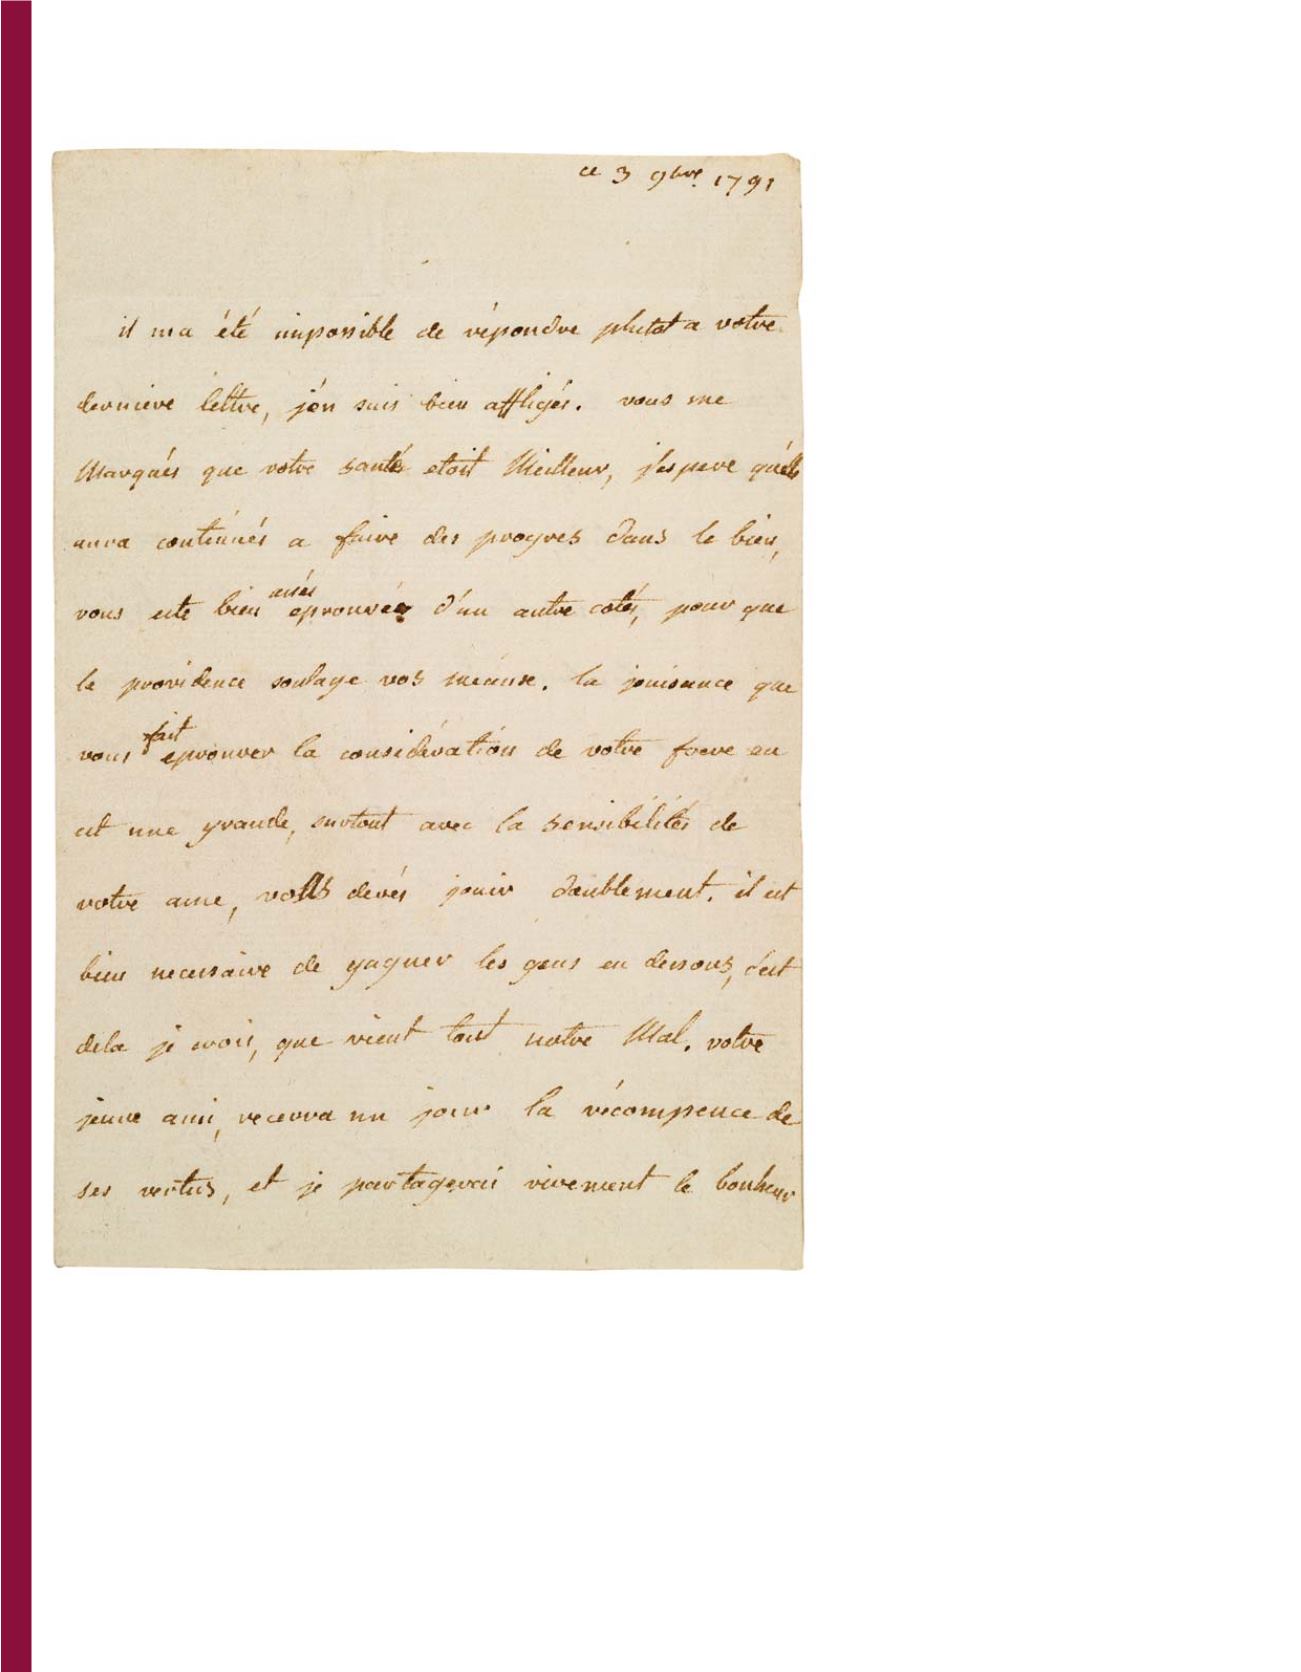 ce 3 9bre 1791
il ma été impossible de répondre plutot a votre
derniere lettre, j'en suis bien affligés. vous me
Marqués que votre santé etoit Meilleur, j'espere qu'elle
aura continués a faire des progres dans le bien,
vous este bien assés eprouvée d'un autre cotés, pour que
la providence soulage vos
la jouisance que
vous fait eprouver la considération de votre frere en
est une grande, surtout avec la sensibilités de
votre ame, vous devés jouir doublement. il est
bien necessaire de gagner les gens en dessous, c'est
dela je crois, que vient tout notre Mal. votre
jeune ami, recevra un jour la récompence de
ses vertus, et je partagerai vivement le bonheur